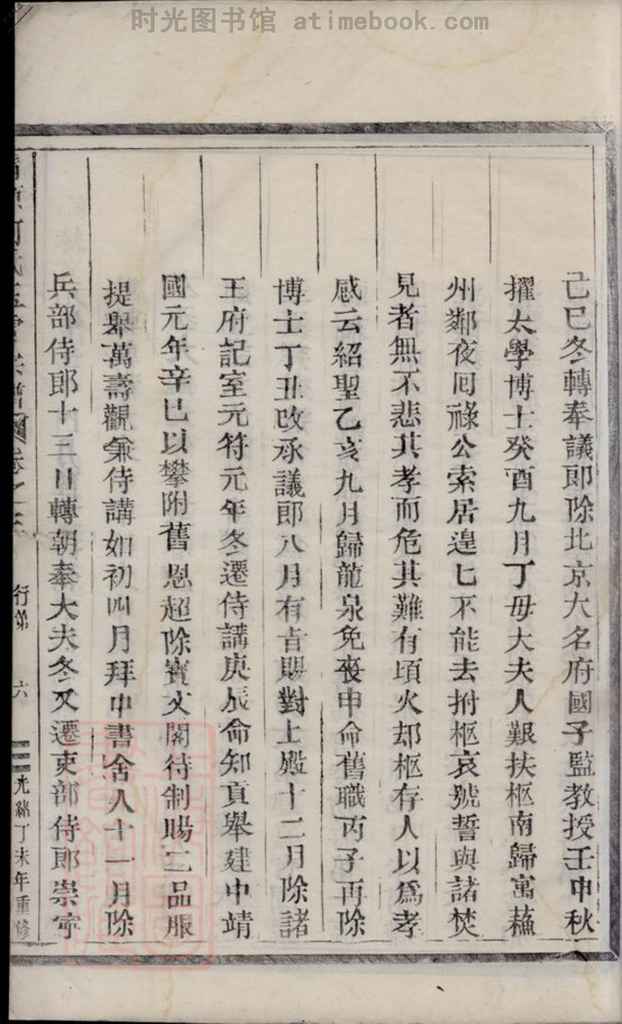 时光图书馆 atimebook.com
己巳冬轉奉議郎除北京大名府國子監教授壬申秋
擢太學博士癸酉九月丁母大夫人艱扶柩南歸寓蘇
州鄰夜回祿公索居遑匕不能去拊柩哀號誓與諸焚
見者無不悲其孝而危其難有頃火却柩存人以爲孝
感云紹聖乙亥九月歸龍泉免喪申命舊職丙子再除
博士丁丑改承議郎八月有旨賜對上殿十二月除諸
王府記室元符元年冬遷侍講庚辰命知貢舉建中靖
國元年辛巳以攀附舊恩超除寶文閣待制賜二品服
提舉萬壽觀兼侍講如初四月拜中書舍人十一月除
兵部侍郎十三日轉朝奉大夫冬又遷吏部侍郎崇寧
宗譜 卷之 行第 六 光緒丁未年重修